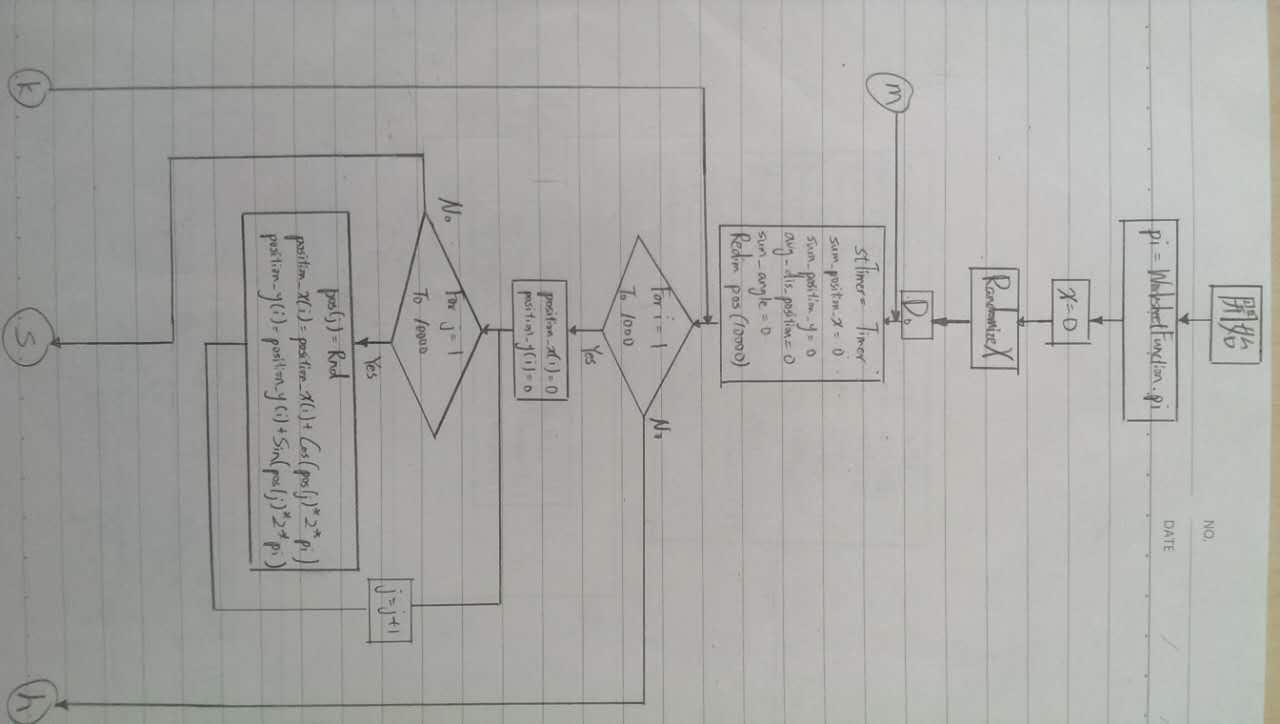 NO.
DATE
開始
pi = WorksheetFunction.pi
x=0
Randomize X
Do
m
stTimer = Timer
sum_position_x = 0
sum_position_y = 0
avg_dis_position = 0
sum_angle = 0
Redim pos(10000)
For i = 1
To 1000
No
Yes
position_x(i)=0
position_y(i)=0
For j = 1
To 10000
No
Yes
pos(j) = Rnd
position_x(i)=position_x(i)+Cos(pos(j)*2*pi)
position_y(i)=position_y(i)+Sin(pos(j)*2*pi)
j=j+1
k
S
h